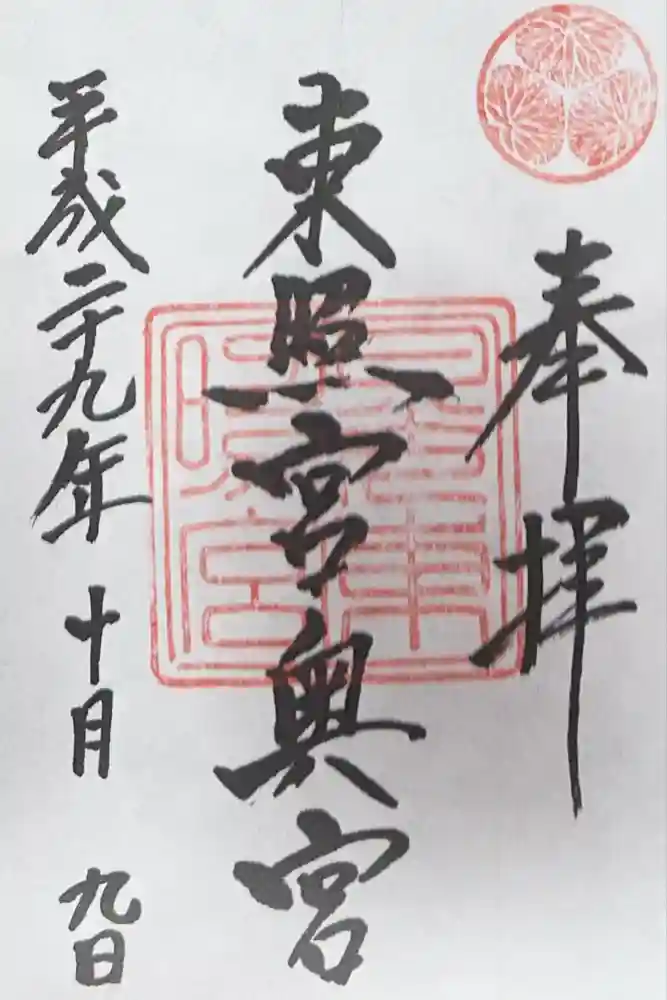 奉拝
東照宮奥宮
平成二十九年 十月 九日